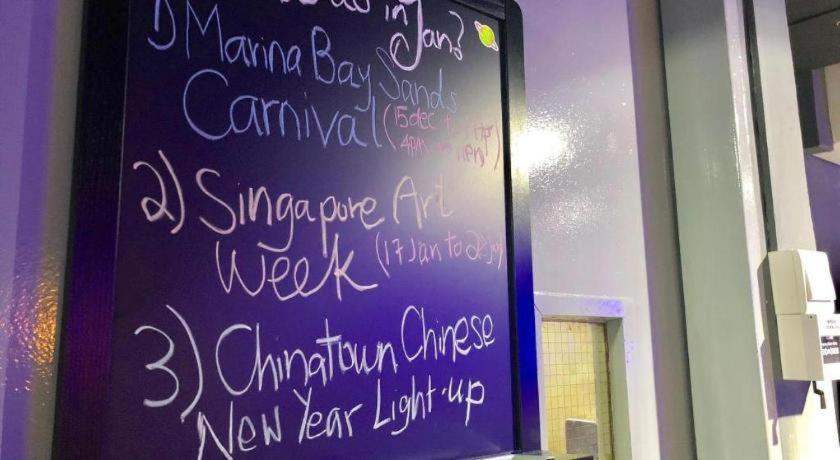 in Jan?
1) Marina Bay Sands
Carnival (15 dec
4pm 11pm)
2) Singapore Art
Week (17 Jan to
3) Chinatown Chinese
New Year Light-up